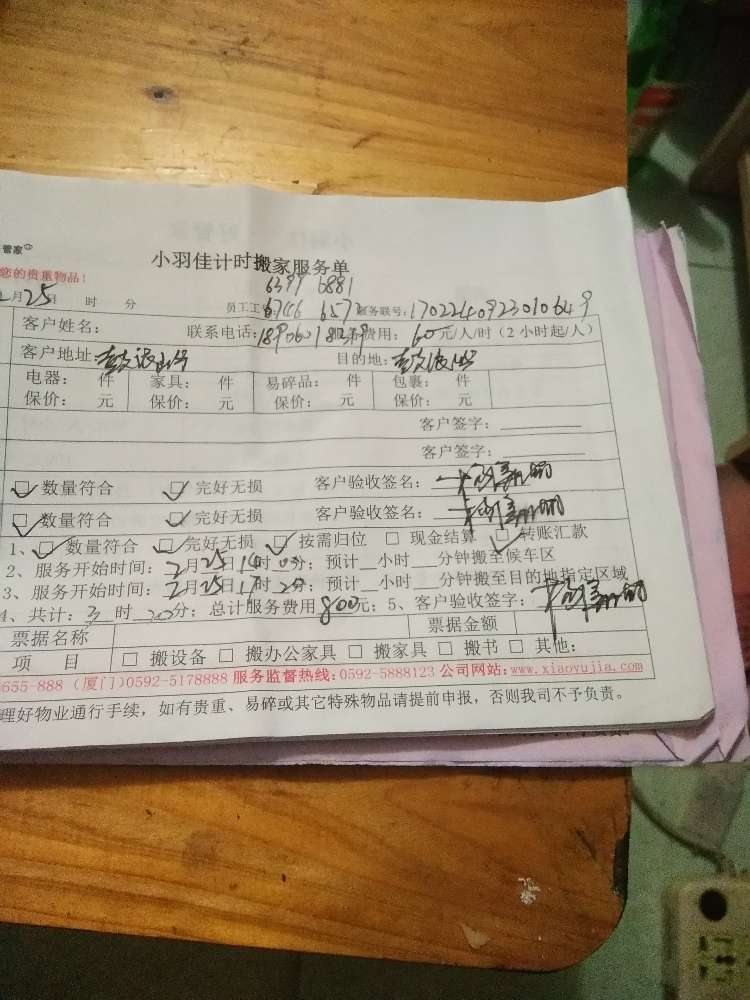 管家
小羽佳计时搬家服务单
您的贵重物品!
6391 6881
2月25日 时 分 员工工号: 6746 6572 服务联号: 1702240923010649
客户姓名: 联系电话: 服务费用: 60元/人/时(2小时起/人)
客户地址: 鼓浪屿 目的地: 鼓浪屿
电器: 件 家具: 件 易碎品: 件 包裹: 件
保价: 元 保价: 元 保价: 元 保价: 元
客户签字:
客户签字:
数量符合 完好无损 客户验收签名:
数量符合 完好无损 客户验收签名:
1、 数量符合 完好无损 按需归位 现金结算 转账汇款
2、服务开始时间: 2月25日14时0分; 预计__小时__分钟搬至候车区
3、服务开始时间: 2月25日17时20分; 预计__小时__分钟搬至目的地指定区域
4、共计: 3时20分; 总计服务费用800元; 5、客户验收签字:
票据名称 票据金额
项 目 搬设备 搬办公家具 搬家具 搬书 其他:
655-888 (厦门)0592-5178888 服务监督热线: 0592-5888123 公司网站: www.xiaoyujia.com
理好物业通行手续, 如有贵重、易碎或其它特殊物品请提前申报, 否则我司不予负责。